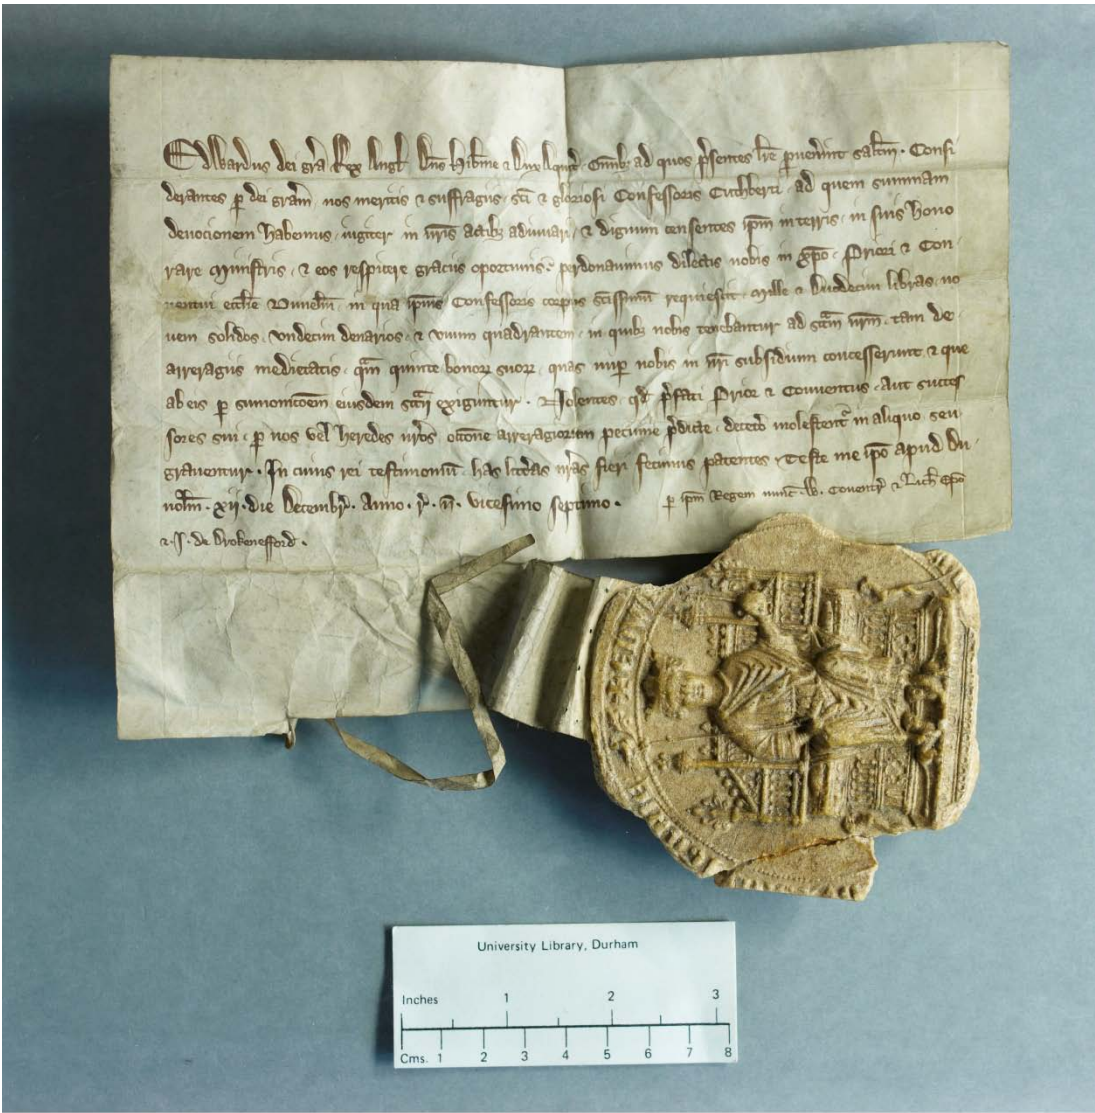 Edwardus dei gra Rex Angl Dns Hibnie ⁊ Dux Aquit Omnib; ad quos psentes lre puenint saltm · Consi
derantes p dei gram nos meritis ⁊ suffragiis sci ⁊ gloriosi Confessoris Cuthberti ad quem summam
deuocionem habemus iugiter in nris actib; adiuuari ⁊ dignum censentes ipm in terris in suis hono
rare ministris ⁊ eos respicere graciis oportunis perdonauimus dilectis nobis in xpo Priori ⁊ Con
uentui ecclie Dunelm in qua ipius Confessoris corpus scissimum requiescit Mille ⁊ Duodecim libras no
uem solidos vndecim denarios ⁊ vnum quadrantem in quib; nobis tenebantur ad sccm nrm tam de
arreragiis medietatis qm quinte bonor suor quas nup nobis in nri subsidium concesserunt ⁊ que
ab eis p sumonicoem eiusdem sccii exiguntur · Nolentes qd pfati Prior ⁊ Conuentus aut succes
sores sui p nos vel heredes nros occone arreragiorum pecunie pdicte deceto molestent in aliquo seu
grauentur · In cuius rei testimoniu has litteras nras fieri fecimus patentes Teste me ipo apud Du
nolm · xii · die Decembr · Anno · r · n · vicesimo septimo ·
p ipm Regem nunc · W · Couentr ⁊ Lich Epo
⁊ · J · de Drokenefford ·
University Library, Durham
Inches 1 2 3
Cms. 1 2 3 4 5 6 7 8